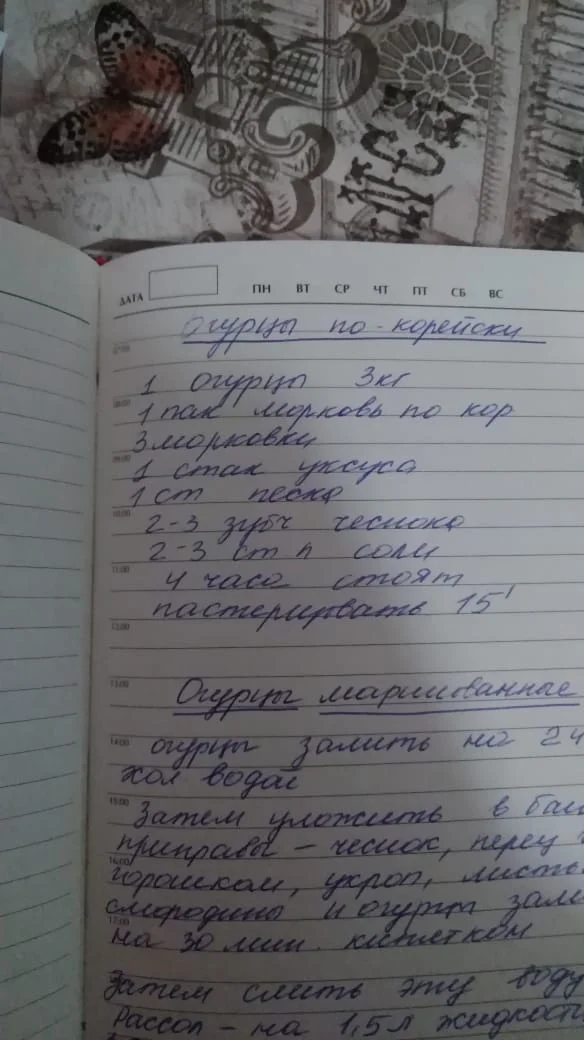 ДАТА ПН ВТ СР ЧТ ПТ СБ ВС
Огурцы по-корейски
07:00
1 огурцы 3кг
08:00
1 пак морковь по кор
3 морковки
09:00
1 стак уксуса
1 ст песка
10:00
2-3 зубч чеснока
2-3 ст л соли
11:00
4 часа стоят
пастеризовать 15'
12:00
13:00
Огурцы маринованные
14:00
огурцы залить на 2ч
хол водой
15:00
Затем уложить в
приправы – чеснок, перец
16:00
горошком, укроп,
смородины и огурцы
17:00
на 30 мин. кипятком
Затем слить эту воду
Рассол – на 1,5л жидкости